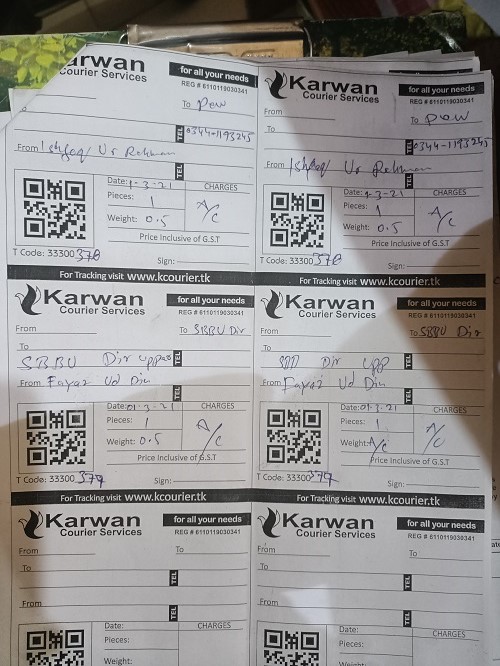 Karwan
Courier Services
for all your needs
REG # 6110119030341
To Pew
TEL 0344-1193245
From Ishfaq Ur Rehman
TEL
Date: 1-3-21 CHARGES
Pieces: 1 A/C
Weight: 0.5
Price Inclusive of G.S.T
T Code: 33300378 Sign:
Karwan
Courier Services
for all your needs
REG # 6110119030341
To Pew
TEL 0344-1193245
From Ishfaq Ur Rehman
TEL
Date: 1-3-21 CHARGES
Pieces: 1 A/C
Weight: 0.5
Price Inclusive of G.S.T
T Code: 33300378 Sign:
For Tracking visit www.kcourier.tk
For Tracking visit www.kcourier.tk
Karwan
Courier Services
for all your needs
REG # 6110119030341
From To SBBU Dir
To
SBBU Dir upper TEL
From Fayaz Ud Din
TEL
Date: 01-3-21 CHARGES
Pieces: 1 A/C
Weight: 0.5
Price Inclusive of G.S.T
T Code: 33300379 Sign:
Karwan
Courier Services
for all your needs
REG # 6110119030341
From To SBBU Dir
To
Dir upp TEL
From Fayaz Ud Din
TEL
Date: 01-3-21 CHARGES
Pieces: 1 A/C
Weight: A/C
Price Inclusive of G.S.T
T Code: 33300379 Sign:
For Tracking visit www.kcourier.tk
For Tracking visit www.kcourier.tk
Karwan
Courier Services
for all your needs
REG # 6110119030341
From To
To
TEL
From
TEL
Date: CHARGES
Pieces:
Weight:
Karwan
Courier Services
for all your needs
REG # 6110119030341
From To
To
TEL
From
TEL
Date: CHARGES
Pieces:
Weight: